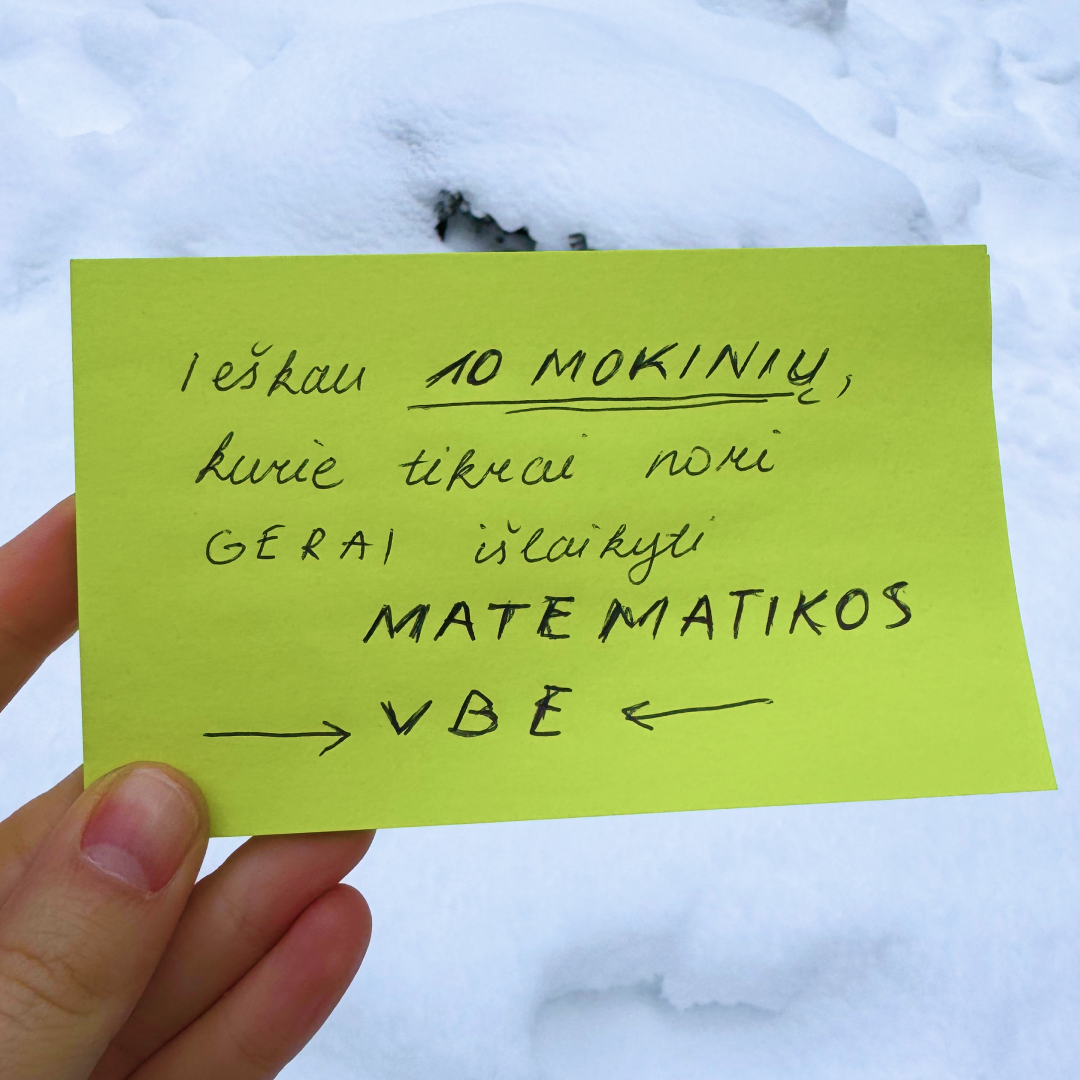 Ieškau 10 MOKINIŲ,
kurie tikrai nori
GERAI išlaikyti
MATEMATIKOS
→ VBE ←